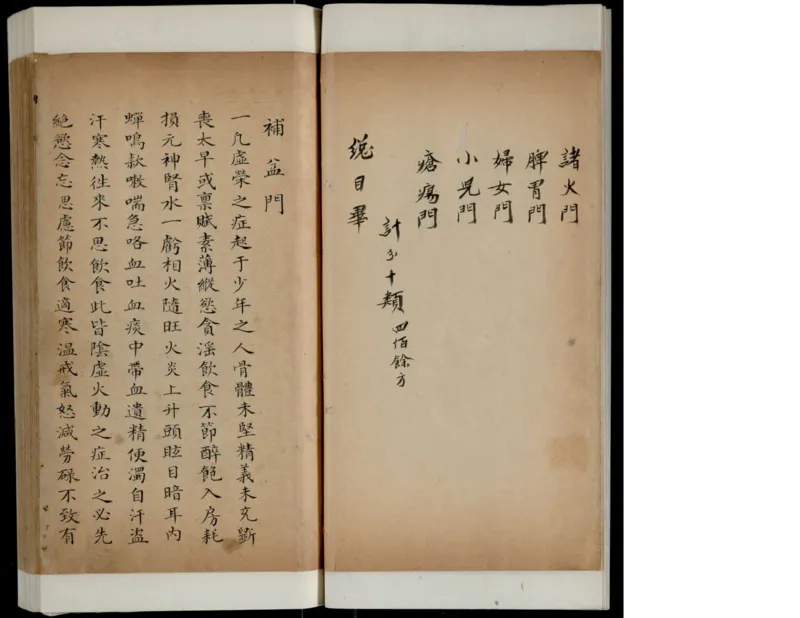 諸火門
脾胃門
婦女門
小児門
瘡瘍門
計分十類 四佰餘方
總目畢
補益門
一凡虛勞之症起于少年之人骨體未堅精義未充斵
喪太早或禀賦素薄縱慾貪淫飲食不節醉飽入房耗
損元神腎水一虧相火隨旺火炎上升頭眩目暗耳內
蟬鳴欬嗽喘急咯血吐血痰中帶血遺精便濁自汗盜
汗寒熱徃來不思飲食此皆陰虛火動之症治之必先
絶慾念忘思慮節飲食適寒温戒氣怒減勞碌不致有